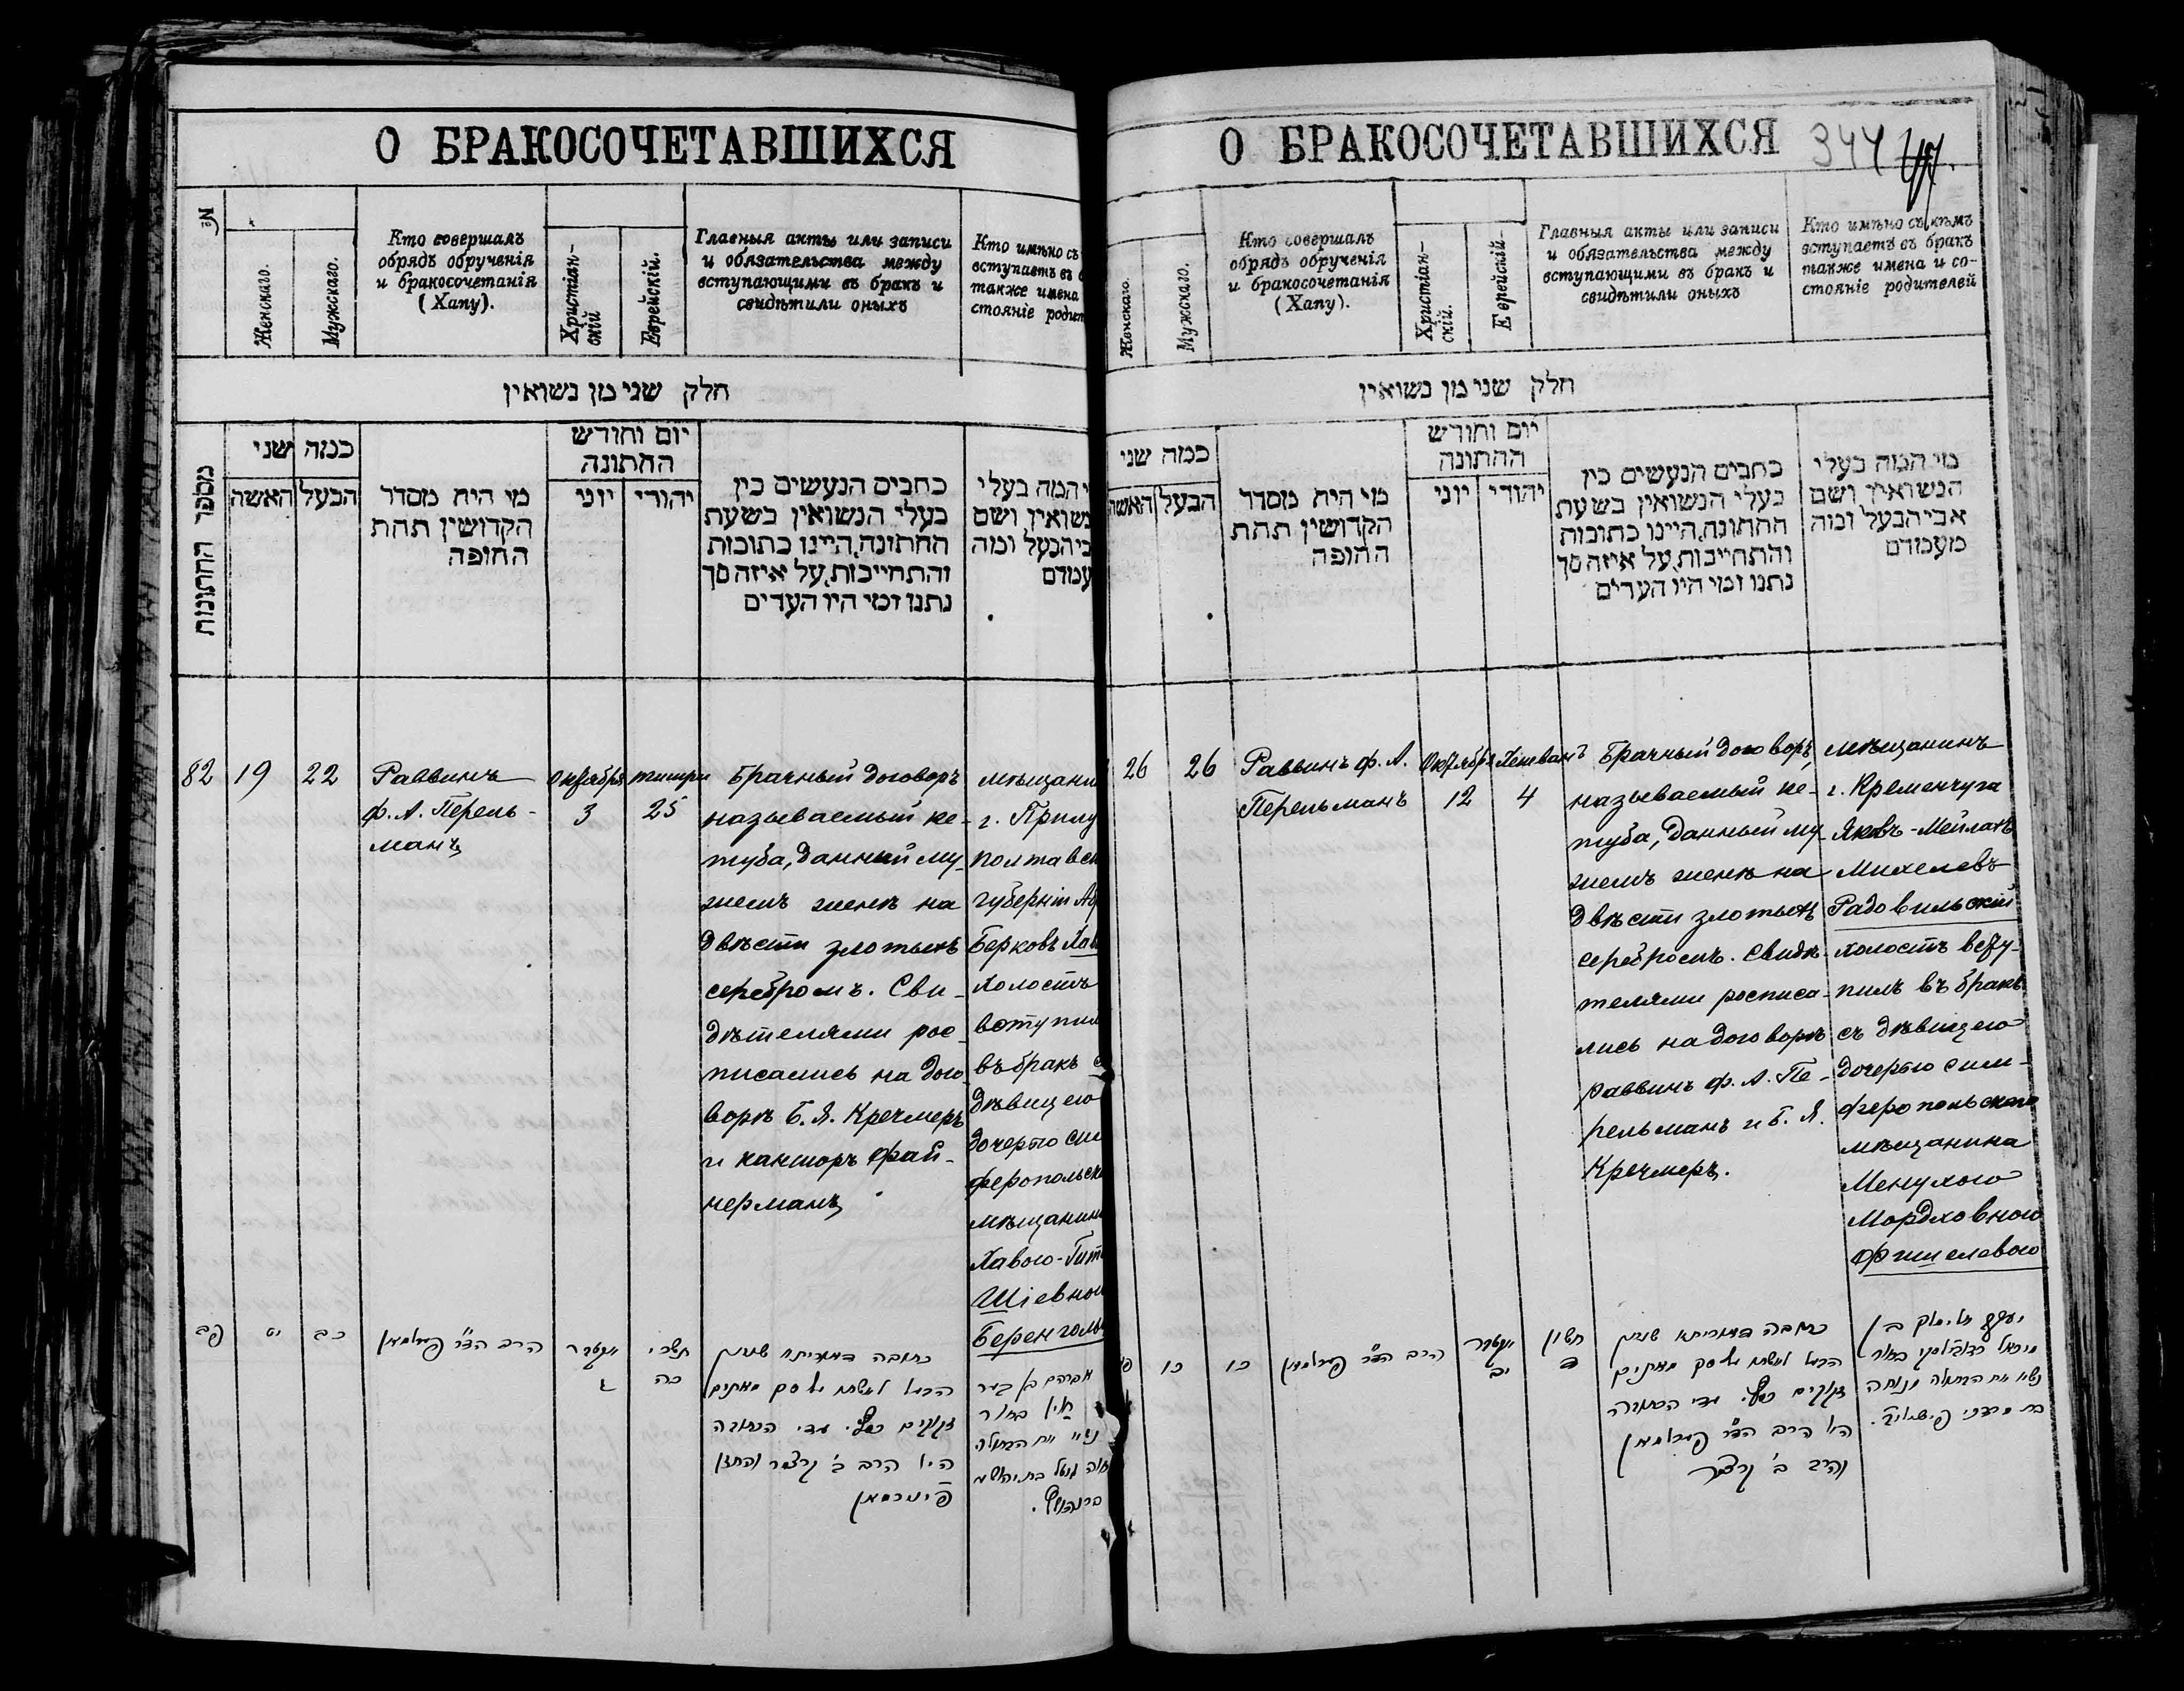 О БРАКОСОЧЕТАВШИХСЯ
№
Женскаго.
Мужскаго.
Кто совершалъ
обрядъ обрученія
и бракосочетанія
(Хапу).
Христіан-
скій
Еврейскій.
Главныя акты или записи
и обязательства между
вступающими въ бракъ и
свидѣтили оныхъ
Кто имѣно съ
вступаетъ въ
также имена
стояніе
חלק שני מן נשואין
מספר החתונות
כמה שני
האשה
הבעל
מי היה מסדר
הקדושין תחת
החופה
יום וחורש
החתונה
יוני
יהודי
כתבים הנעשים בין
בעלי הנשואין בשעת
החתונה, היינו כתובות
והתחייבות, על איזה סך
נתנו ומי היו העדים
המה בעלי
נשואין ושם
הבעל ומה
82
19
22
Раввинъ
ф. А. Перель-
манъ
Октября
3
тишри
25
Брачный договоръ
называемый ке-
туба, данный му-
жемъ женѣ на
двѣсти злотыхъ
серебромъ. Сви-
дѣтелями рос-
писались на дого-
ворѣ Б. Я. Кречмеръ
и канторъ Фай-
нерманъ
г.
губерніи
Берковъ
Холостъ
въ бракъ
дѣвицею
дочерью
Хавою-
פב
יט
כב
הרב הד"ר פערלמאן
אקטאבר
ג
תשרי
כה
כתובה דאורייתא שנתן
הבעל לאשתו על סך מאתים
זקוקים כסף. עדי הכתובה
היו הרב ב' קרצמר והחזן
פיינרמאן
אברהם בן בער
בחור
נשא את הבתולה
О БРАКОСОЧЕТАВШИХСЯ 344
Женскаго.
Мужскаго.
Кто совершалъ
обрядъ обрученія
и бракосочетанія
(Хапу).
Христіан-
скій.
Еврейскій.
Главныя акты или записи
и обязательства между
вступающими въ бракъ и
свидѣтили оныхъ
Кто имѣно съ кѣмъ
вступаетъ въ бракъ
также имена и со-
стояніе родителей
חלק שני מן נשואין
כמה שני
האשה
הבעל
מי היה מסדר
הקדושין תחת
החופה
יום וחורש
החתונה
יוני
יהודי
כתבים הנעשים בין
בעלי הנשואין בשעת
החתונה, היינו כתובות
והתחייבות, על איזה סך
נתנו ומי היו העדים
מי המה בעלי
הנשואין ושם
אבי הבעל ומה
מעמדם
26
26
Раввинъ ф. А.
Перельманъ
Октября
12
Хешванъ
4
Брачный договоръ,
называемый ке-
туба, данный му-
жемъ женѣ на
двѣсти злотыхъ
серебромъ. Свидѣ-
телями росписа-
лись на договорѣ
раввинъ ф. А. Пе-
рельманъ и Б. Я.
Кречмеръ.
мѣщанинъ
г. Кременчуга
Яковъ-Мейлахъ
Михелевъ
Радовильскій
холостъ всту-
пилъ въ бракъ
съ дѣвицею
дочерью сим-
феропольскаго
мѣщанина
Менухою
Мордховною
Фишелевою
כו
כו
הרב הד"ר פערלמאן
אקטאבר
יב
חשון
ד
כתובה דאורייתא שנתן
הבעל לאשתו על סך מאתים
זקוקים כסף. עדי הכתובה
היו הרב הד"ר פערלמאן
והרב ב' קרצמר
יעקב מיילך בן
מיכאל בחור
נשא את הבתולה מנוחה
בת מרדכי